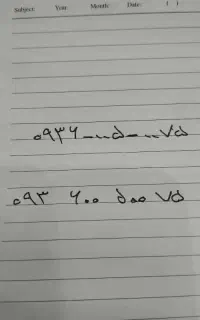 Subject: Year: Month: Date: ( )
۰۹۳۶-۰۰۵-۰۰۷۵
۰۹۳ ۶۰۰ ۵۰۰ ۷۵